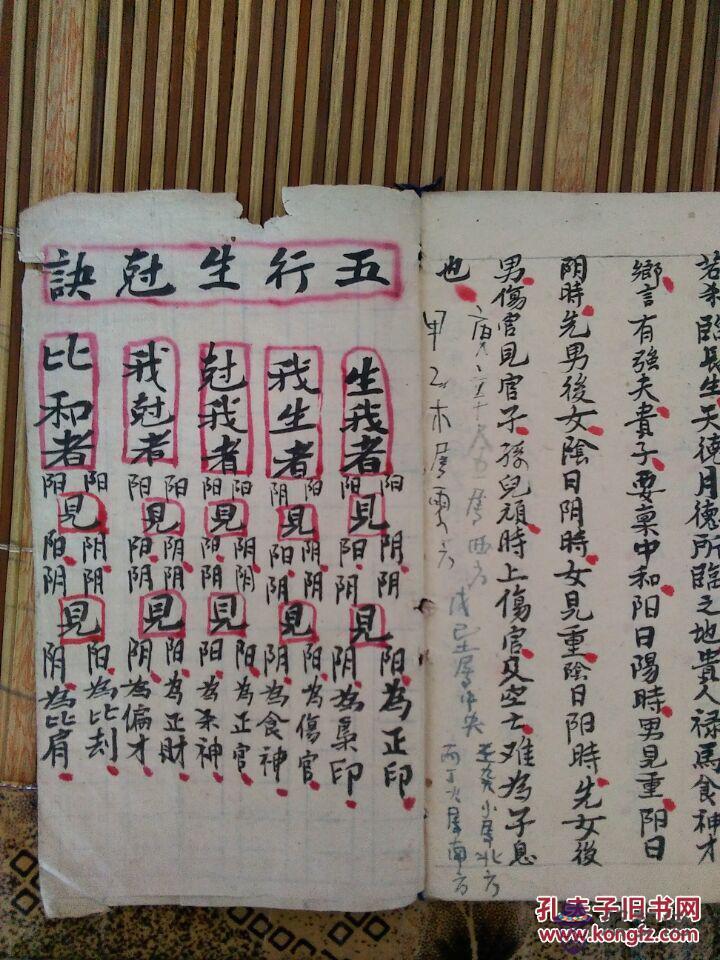 若来臨長生天德月德所臨之地貴人禄馬食神才
鄉言有強夫貴子要禀中和阳日陽時男見重阳日
阴時先男後女陰日阴時女見重陰日阳時先女後
男傷官見官子孫兒頑時上傷官及空亡难為子息
也
甲乙木屬東方
戊己土屬中央
丙丁火屬南方
五行生尅訣
生我者
阳見阴 阴見阳為正印
阳見阳 阴見阴為梟印
我生者
阳見阴 阴見阳為傷官
阳見阳 阴見阴為食神
尅我者
阳見阴 阴見阳為正官
阳見阳 阴見阴為杀神
我尅者
阳見阴 阴見阳為正財
阳見阳 阴見阴為偏才
比和者
阳見阴 阴見阳為比刦
阳見阳 阴見阴為比肩
孔夫子旧书网
www.kongfz.com